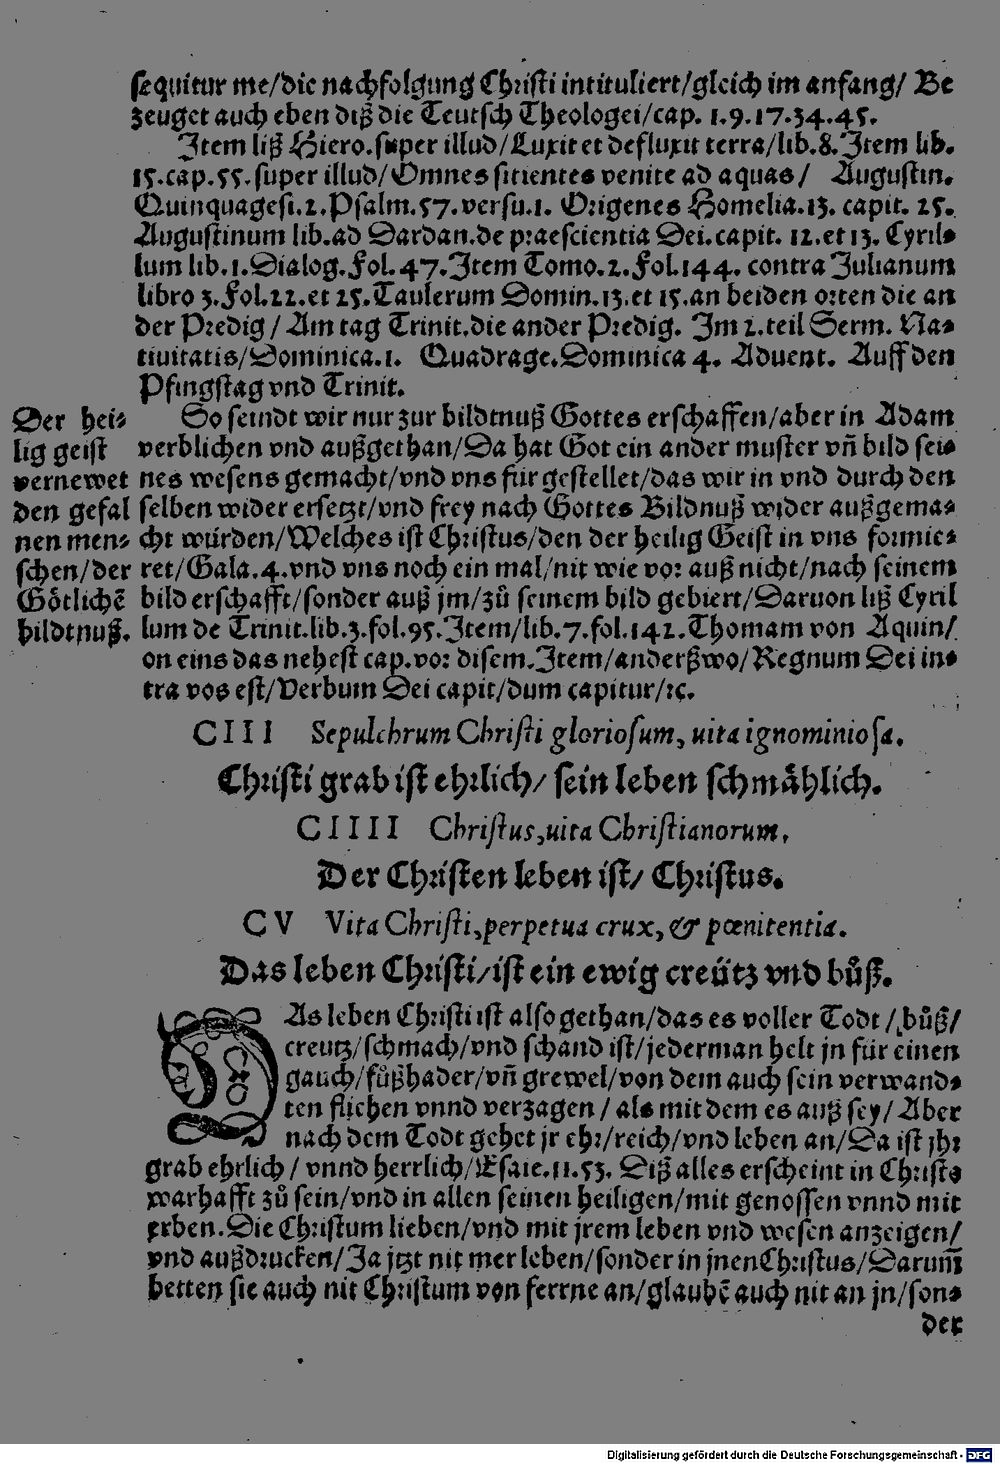 sequitur me/die nachfolgung Christi intituliert/gleich im anfang/ Be
zeuget auch eben diß die Teutsch Theologei/cap. 1.9.17.34.45.
Item liß Hiero.super illud/Luxit et defluxit terra/lib.8.Item lib.
15.cap.55.super illud/Omnes sitientes venite ad aquas/ Augustin.
Quinquagesi.2.Psalm.57.versu.1. Origenes Homelia.13. capit. 25.
Augustinum lib.ad Dardan.de praescientia Dei.capit. 12.et 13. Cyril-
lum lib.1.Dialog.Fol.47.Item Tomo.2.Fol.144. contra Julianum
libro 3.Fol.22.et 25.Taulerum Domin.13.et 15.an beiden orten die an
der Predig/ Am tag Trinit.die ander Predig. Im 2.teil Serm. Na-
tiuitatis/Dominica.1. Quadrage.Dominica 4. Aduent. Auff den
Pfingstag vnd Trinit.
So seindt wir nur zur bildtnuß Gottes erschaffen/aber in Adam
verblichen vnd außgethan/Da hat Got ein ander muster vñ bild sei-
nes wesens gemacht/vnd vns für gestellet/das wir in vnd durch den
selben wider ersetzt/vnd frey nach Gottes Bildnuß wider außgema-
cht würden/Welches ist Christus/den der heilig Geist in vns formie-
ret/Gala.4.vnd vns noch ein mal/nit wie vor auß nicht/nach seinem
bild erschafft/sonder auß jm/zů seinem bild gebiert/Daruon liß Cyril
lum de Trinit.lib.3.fol.95.Item/lib.7.fol.142.Thomam von Aquin/
on eins das nehest cap.vor disem.Item/anderßwo/Regnum Dei in-
tra vos est/Verbum Dei capit/dum capitur/ꝛc.
Der hei-
lig geist
vernewet
den gefal
nen men-
schen/der
Götlichē
bildtnuß.
CIII Sepulchrum Christi gloriosum, uita ignominiosa.
Christi grab ist ehrlich/ sein leben schmählich.
CIIII Christus,uita Christianorum.
Der Christen leben ist/ Christus.
CV Vita Christi,perpetua crux, & pœnitentia.
Das leben Christi/ist ein ewig creütz vnd bůß.
DAs leben Christi ist also gethan/das es voller Todt/bůß/
creutz/schmach/vnd schand ist/jederman helt jn für einen
gauch/fůßhader/vñ grewel/von dem auch sein verwand-
ten fliehen vnnd verzagen/ als mit dem es auß sey/ Aber
nach dem Todt gehet jr ehr/reich/vnd leben an/Da ist jhr
grab ehrlich/ vnnd herrlich/Esaie.11.53. Diß alles erscheint in Christo
warhafft zů sein/vnd in allen seinen heiligen/mit genossen vnnd mit
erben.Die Christum lieben/vnd mit jrem leben vnd wesen anzeigen/
vnd außdrucken/Ja jtzt nit mer leben/sonder in jnen Christus/Darum̄
betten sie auch nit Christum von ferrne an/glaubē auch nit an jn/son-
der
Digitalisierung gefördert durch die Deutsche Forschungsgemeinschaft - DFG